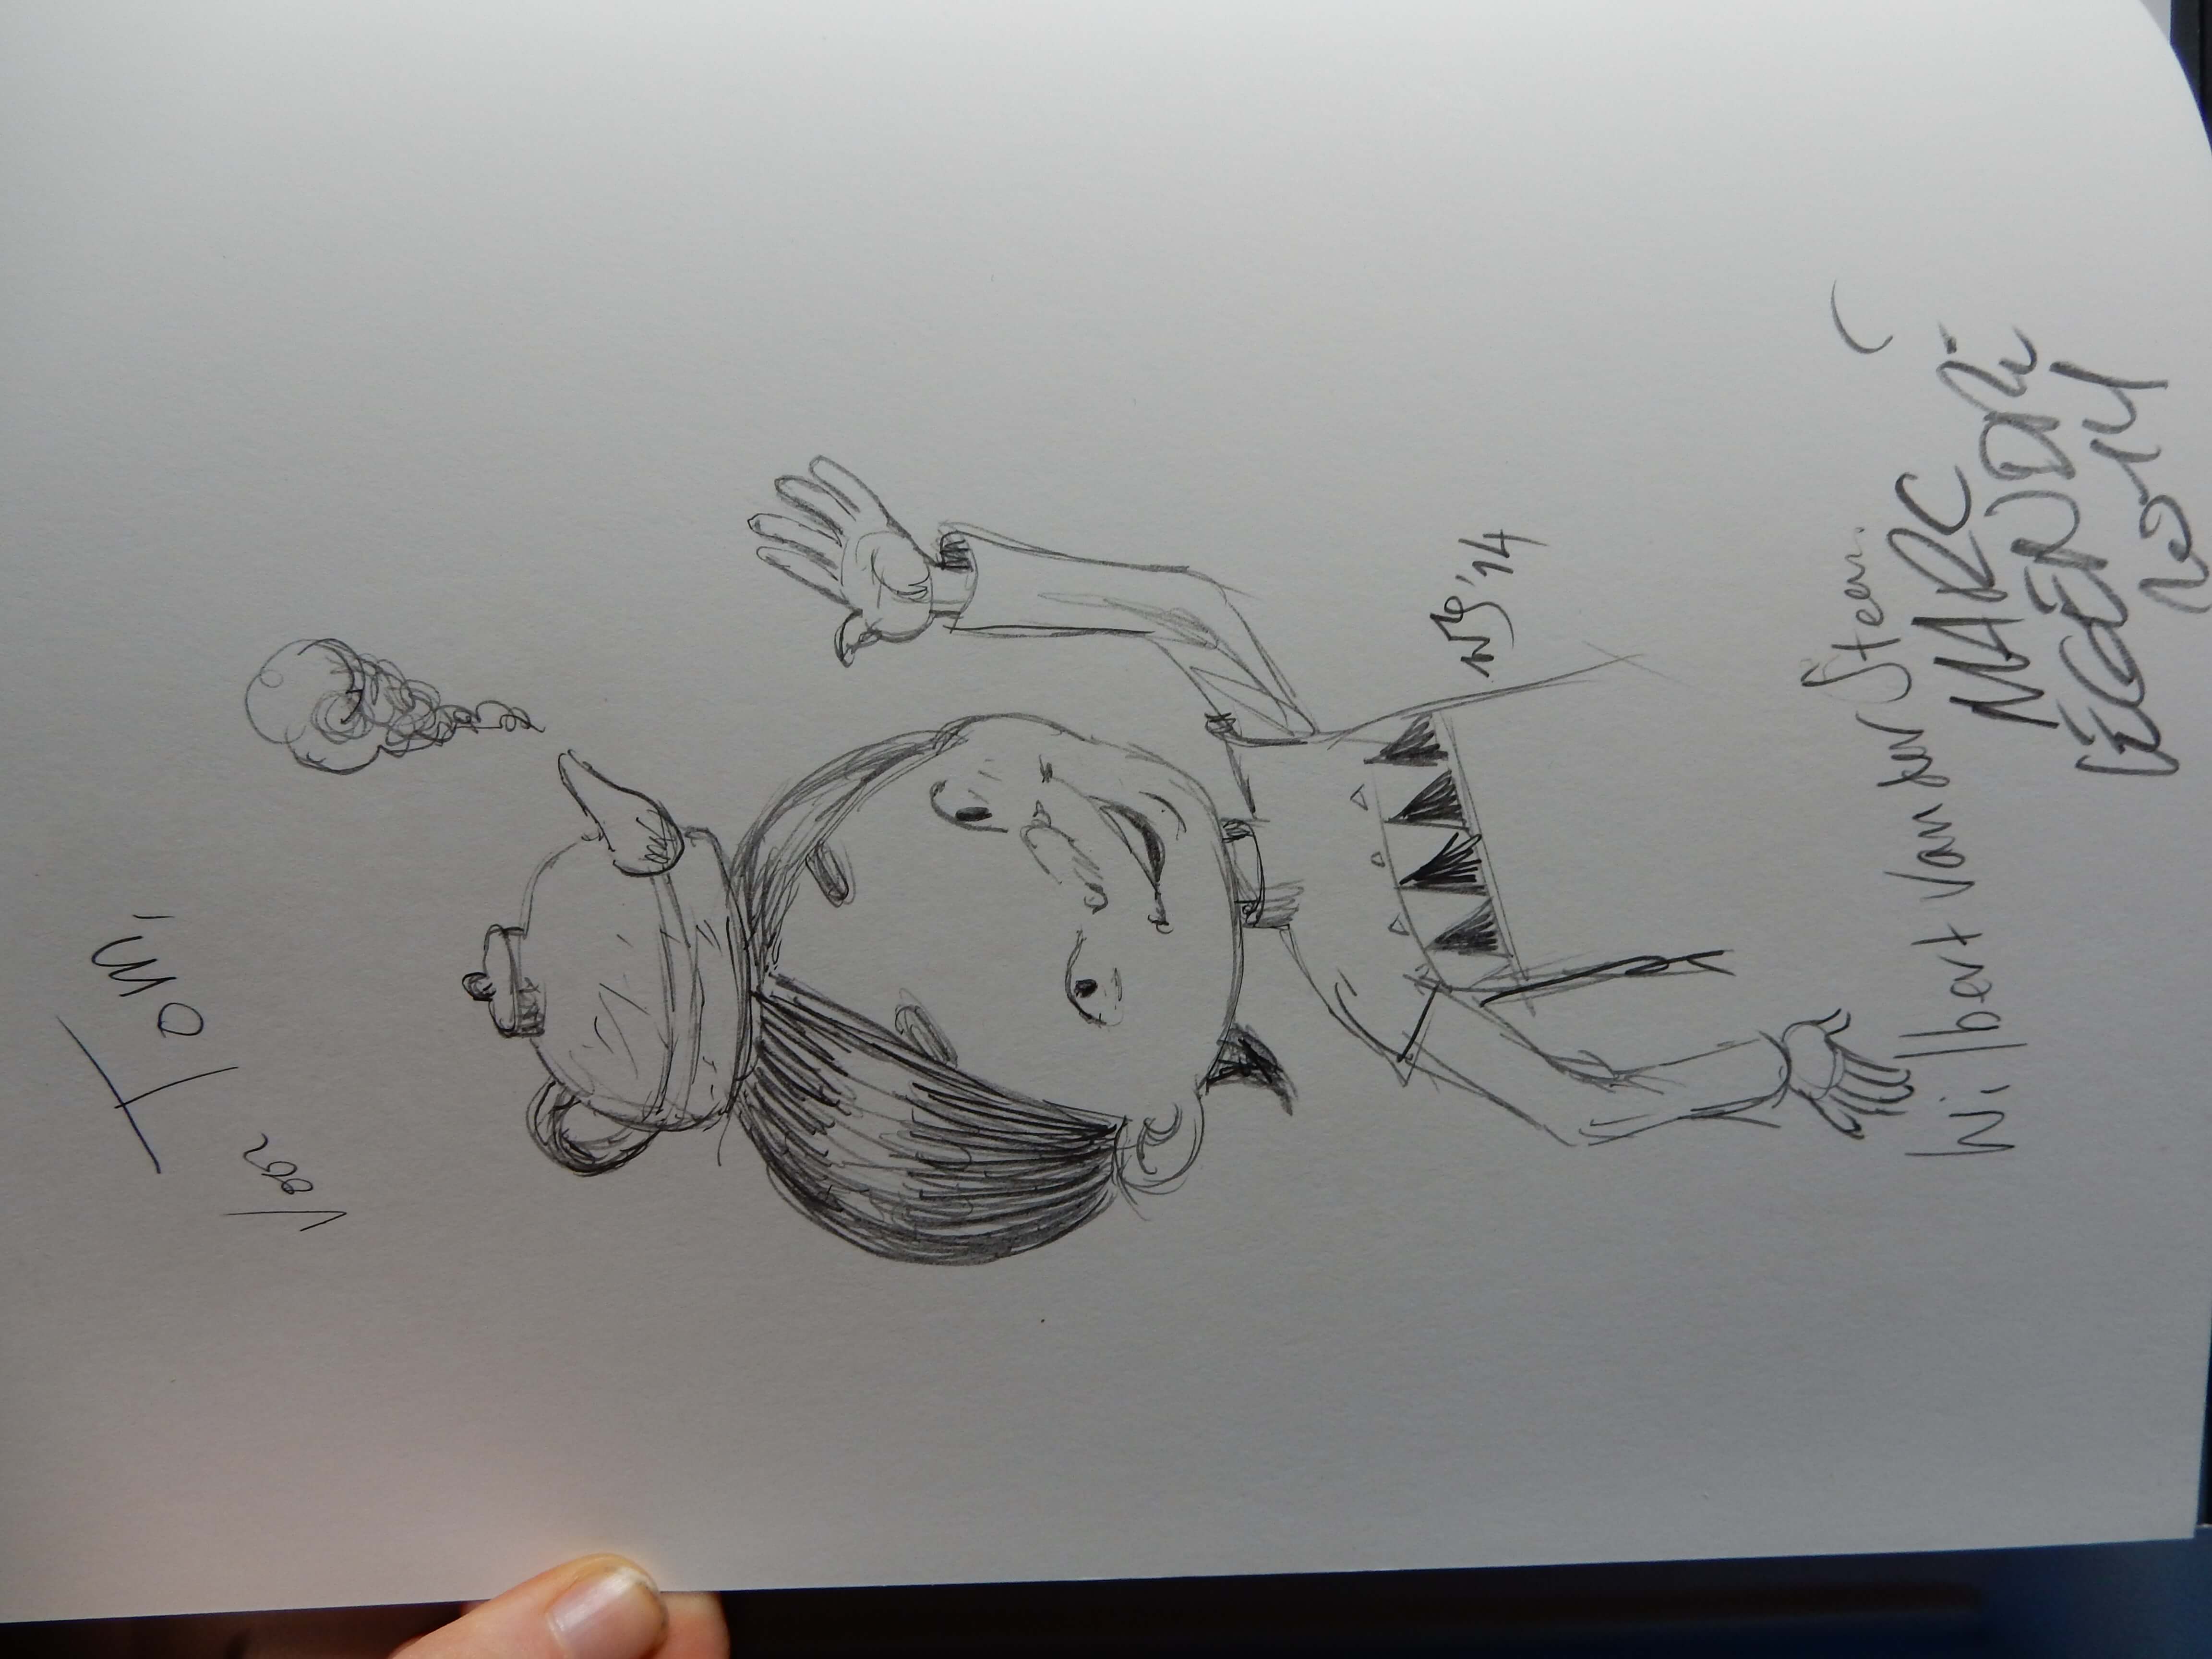 voor Tom,
WG '14
Wilbert van der Steen.
MARC
LEGENDRE
2014